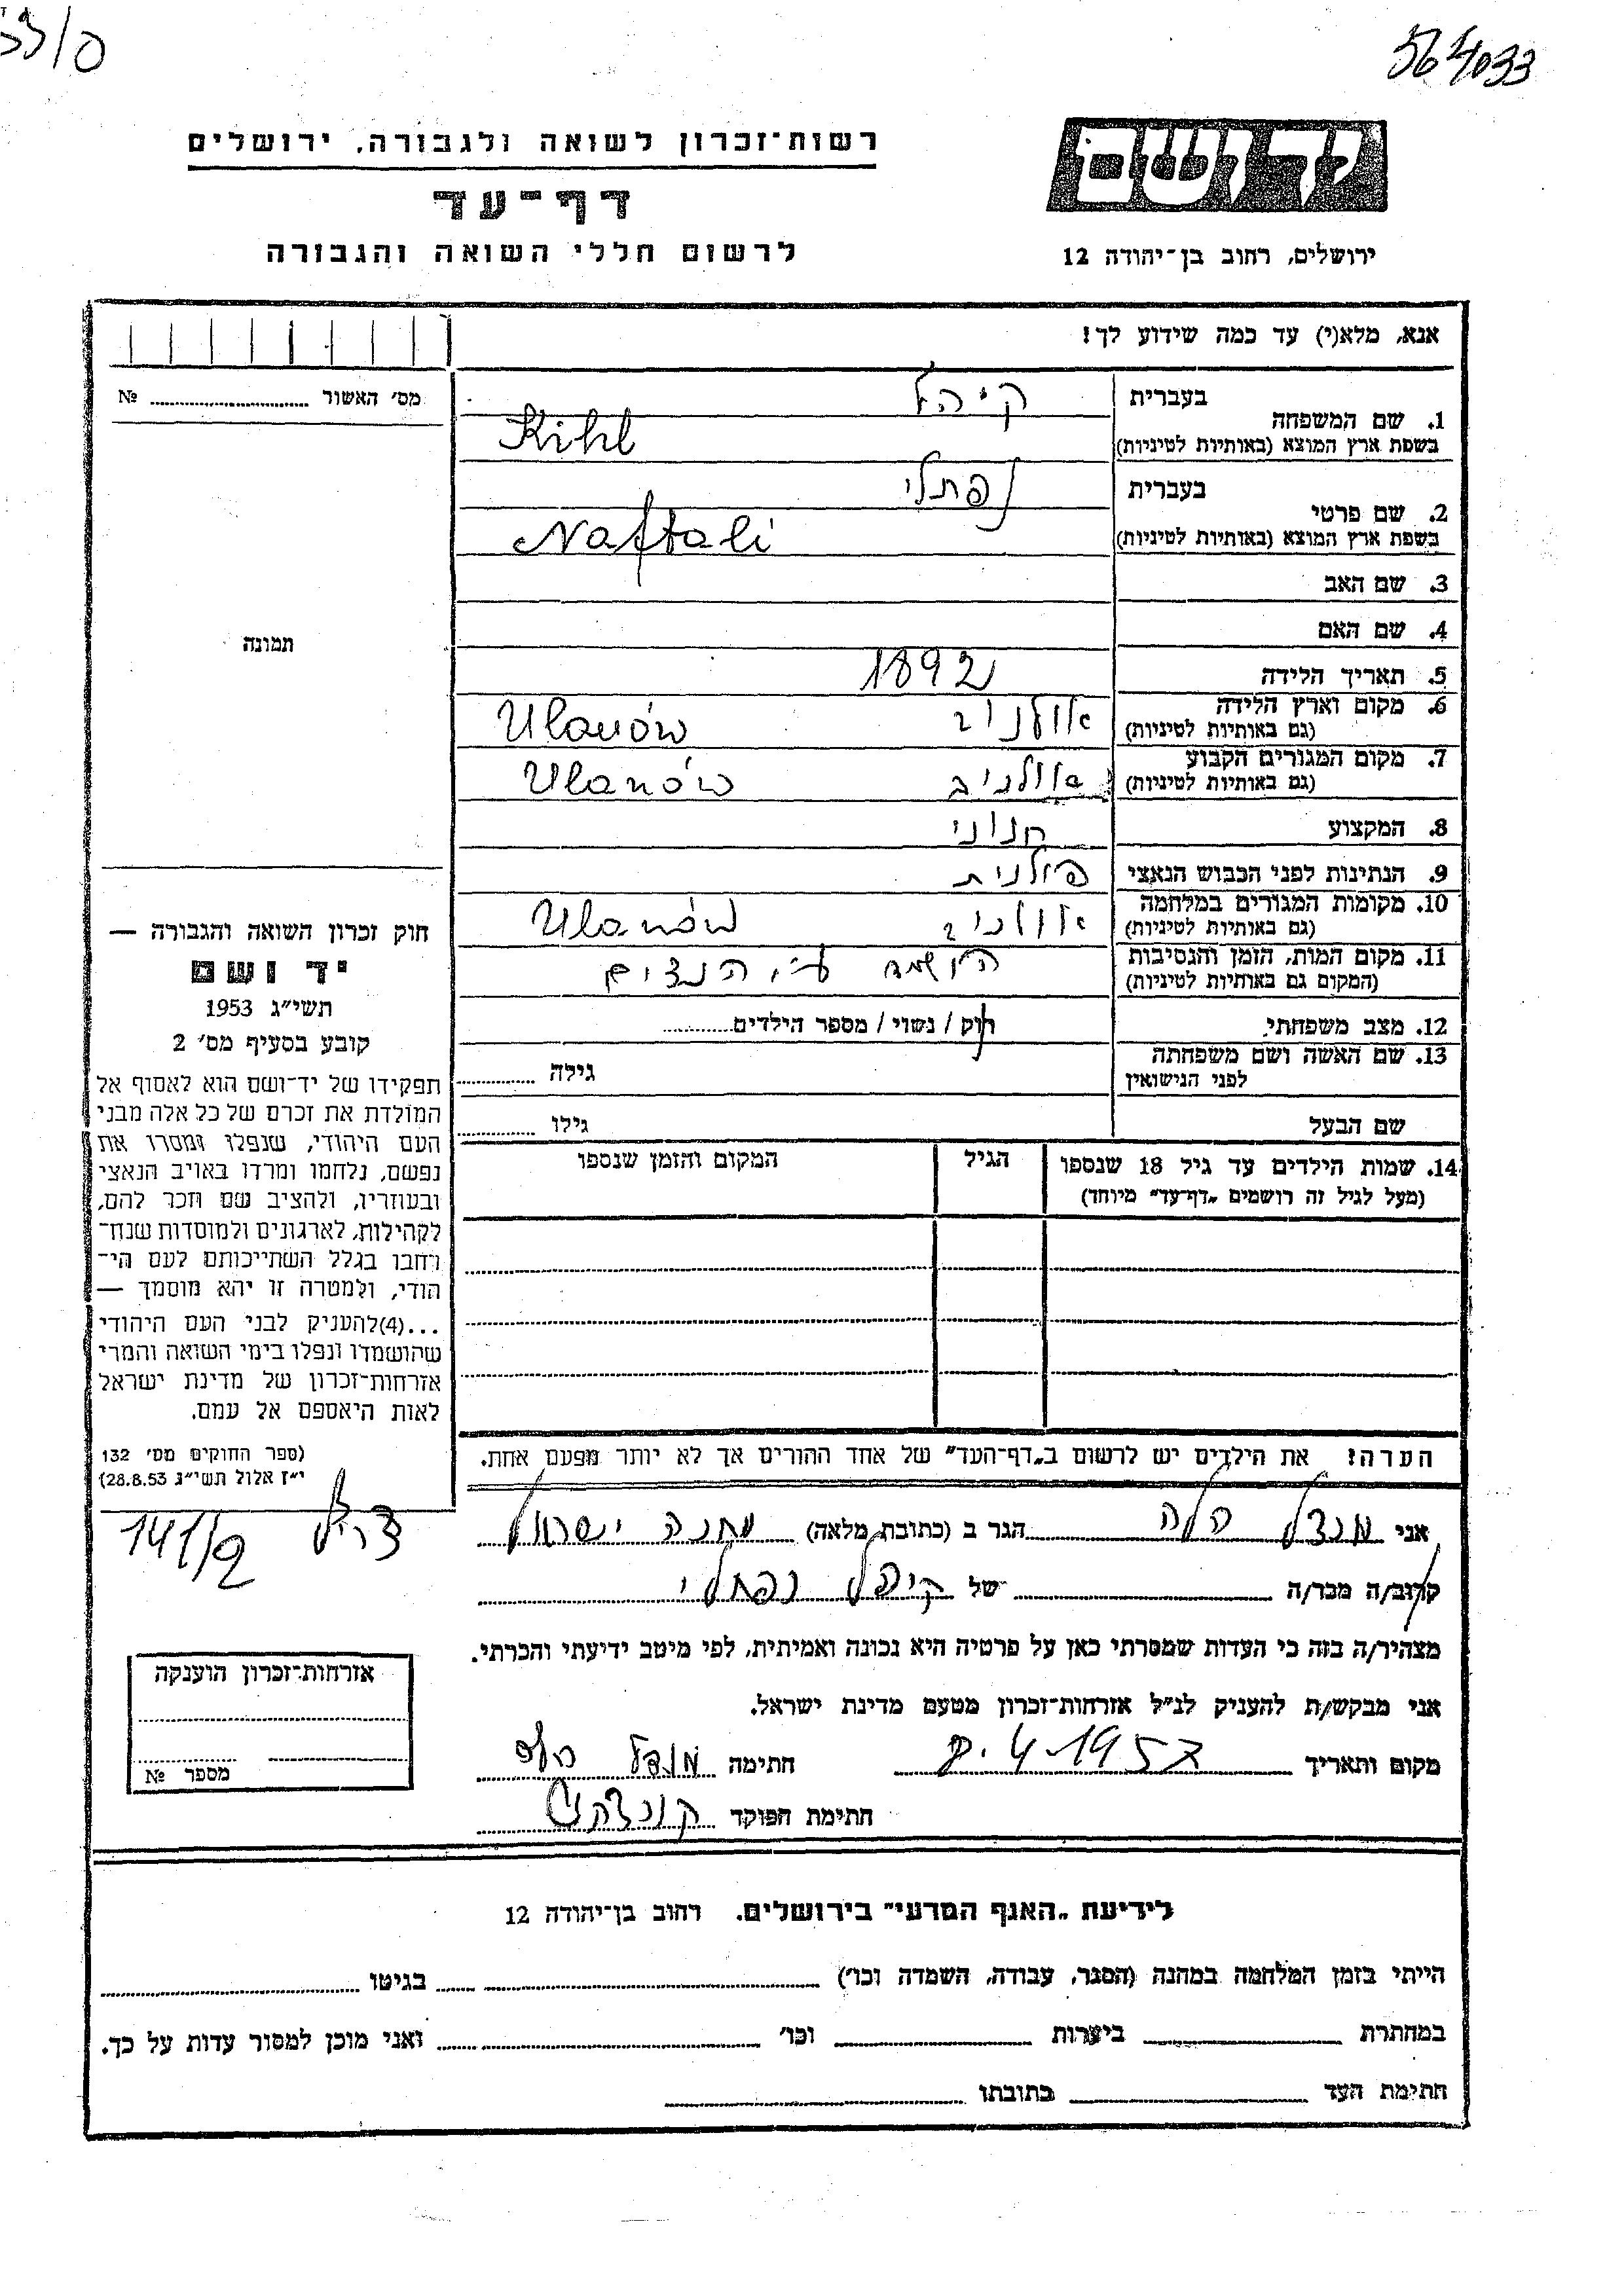 564033
רשות־זכרון לשואה ולגבורה, ירושלים
יד ושם
דף־עד
לרשום חללי השואה והגבורה
ירושלים, רחוב בן־יהודה 12
אנא, מלא(י) עד כמה שידוע לך!
מס׳ האשור № ........
1. שם המשפחה
בעברית קיהל
בשפת ארץ המוצא (באותיות לטיניות) Kihl
2. שם פרטי
בעברית נפתלי
בשפת ארץ המוצא (באותיות לטיניות) Naftali
3. שם האב
4. שם האם
תמונה
5. תאריך הלידה 1892
6. מקום וארץ הלידה (גם באותיות לטיניות) אולנוב Ulanów
7. מקום המגורים הקבוע (גם באותיות לטיניות) אולנוב Ulanów
8. המקצוע חנוני
9. הנתינות לפני הכבוש הנאצי פולנית
10. מקומות המגורים במלחמה (גם באותיות לטיניות) אולנוב Ulanów
11. מקום המות, הזמן והנסיבות (המקום גם באותיות לטיניות) הושמד ע״י הנצים
12. מצב משפחתי רוק / נשוי / מספר הילדים........
13. שם האשה ושם משפחתה לפני הנישואין גילה ........
שם הבעל גילו ........
14. שמות הילדים עד גיל 18 שנספו
(מעל לגיל זה רושמים „דף־עד״ מיוחד)
הגיל
המקום והזמן שנספו
חוק זכרון השואה והגבורה —
יד ושם
תשי״ג 1953
קובע בסעיף מס׳ 2
תפקידו של יד־ושם הוא לאסוף אל
המולדת את זכרם של כל אלה מבני
העם היהודי, שנפלו ומסרו את
נפשם, נלחמו ומרדו באויב הנאצי
ובעוזריו, ולהציב שם וזכר להם,
לקהילות, לארגונים ולמוסדות שנח־
רחבו בגלל השתייכותם לעם הי־
הודי, ולמטרה זו יהא מוסמך —
...(4)להעניק לבני העם היהודי
שהושמדו ונפלו בימי השואה והמרי
אזרחות־זכרון של מדינת ישראל
לאות היאספם אל עמם.
(ספר החוקים מס׳ 132
י״ז אלול תשי״ג 28.8.53)
הערה! את הילדים יש לרשום ב„דף־העד״ של אחד ההורים אך לא יותר מפעם אחת.
141/2
אני מנדל הלה הגר ב (כתובת מלאה) מחנה ישראל
קרוב/ה מכר/ה ........ של קיהל נפתלי
מצהיר/ה בזה כי העדות שמסרתי כאן על פרטיה היא נכונה ואמיתית, לפי מיטב ידיעתי והכרתי.
אני מבקש/ת להעניק לנ״ל אזרחות־זכרון מטעם מדינת ישראל.
מקום ותאריך 8.4.1957 חתימה מנדל הלה
חתימת הפוקד
אזרחות־זכרון הוענקה
מספר №
לידיעת „האגף המדעי״ בירושלים. רחוב בן־יהודה 12
הייתי בזמן המלחמה במחנה (הסגר, עבודה, השמדה וכו׳) ........ בגיטו ........
במחתרת ........ ביערות ........ וכו׳ ........ ואני מוכן למסור עדות על כך.
חתימת העד ........ כתובתו ........